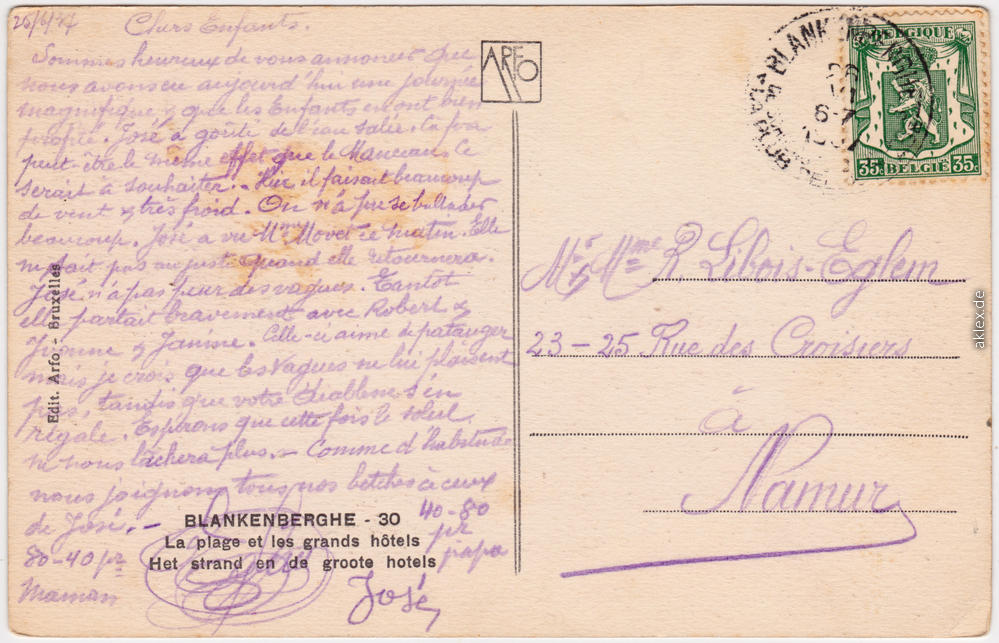 25/6/37 Chers Enfants.
Sommes heureux de vous annoncer que
nous avons eu aujourd'hui une journée
magnifique & que les Enfants en ont bien
profité. José a goûté de l'eau salée. Ça fera
peut-être le même effet que le ce
serait à souhaiter. - Hier il faisait beaucoup
de vent & très froid. On n'a pu se
beaucoup. José a vu Mme Movet ce matin. Elle
ne sait pas au juste quand elle retournera.
José n'a pas peur des vagues. Tantôt
elle partait bravement avec Robert &
Yvonne & Janine. Celle-ci aime de patauger
mais je crois que les vagues ne lui plaisent
pas, tandis que votre diablesse s'en
régale. Espérons que cette fois le soleil
ne nous lâchera plus. - Comme d'habitude
nous joignons tous nos betches à ceux
de José. -
80-40 pr
Maman
40-80
pr
papa
José
BLANKENBERGHE - 30
La plage et les grands hôtels
Het strand en de groote hotels
Edit. Arfo - Bruxelles
ARFO
BLANKENBERGHE
26
6-7
1937
BELGIQUE
35c BELGIË 35c
Mr & Mme R. Libois-Eglem
23-25 Rue des Croisiers
à
Namur
aklex.de